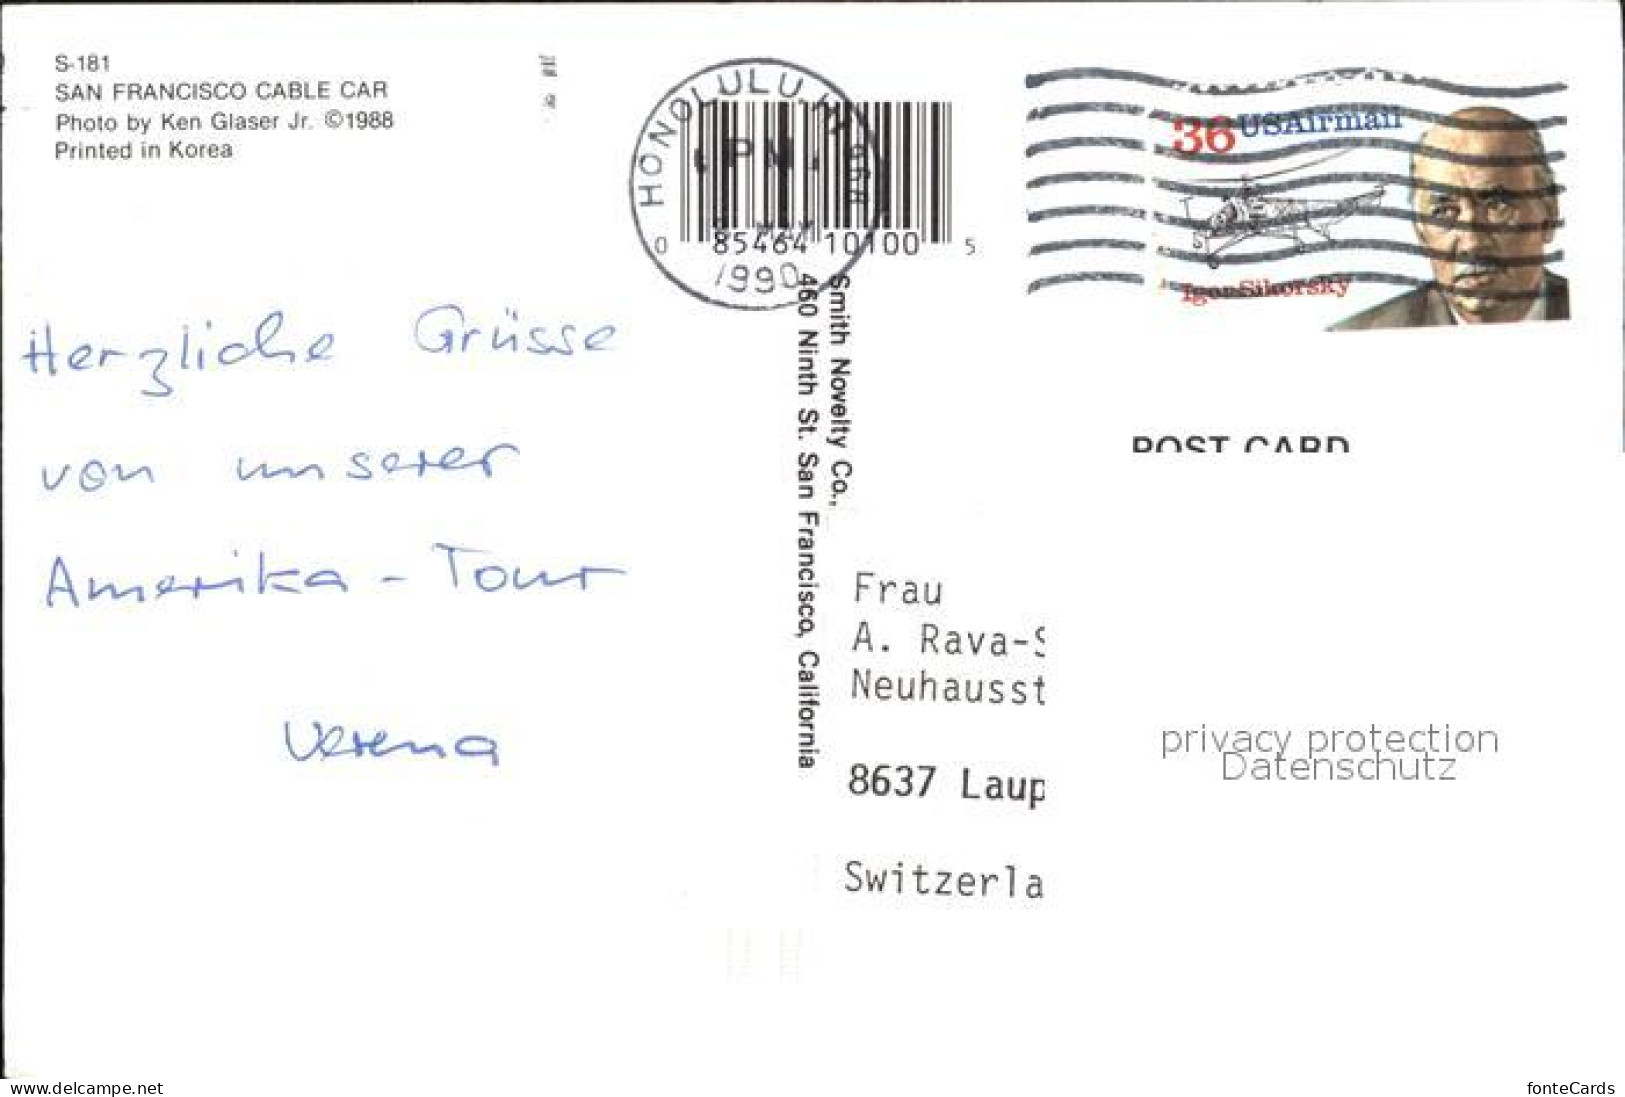 S-181
SAN FRANCISCO CABLE CAR
Photo by Ken Glaser Jr. ©1988
Printed in Korea
HONOLULU,
PM
1990
0 85464 10100 5
36 USAirmail
Igor Sikorsky
POST CARD
Herzliche Grüsse
von unserer
Amerika-Tour
Verena
Smith Novelty Co.,
460 Ninth St. San Francisco, California
Frau
A. Rava-S
Neuhausst
8637 Laup
Switzerla
privacy protection
Datenschutz
www.delcampe.net
fonteCards